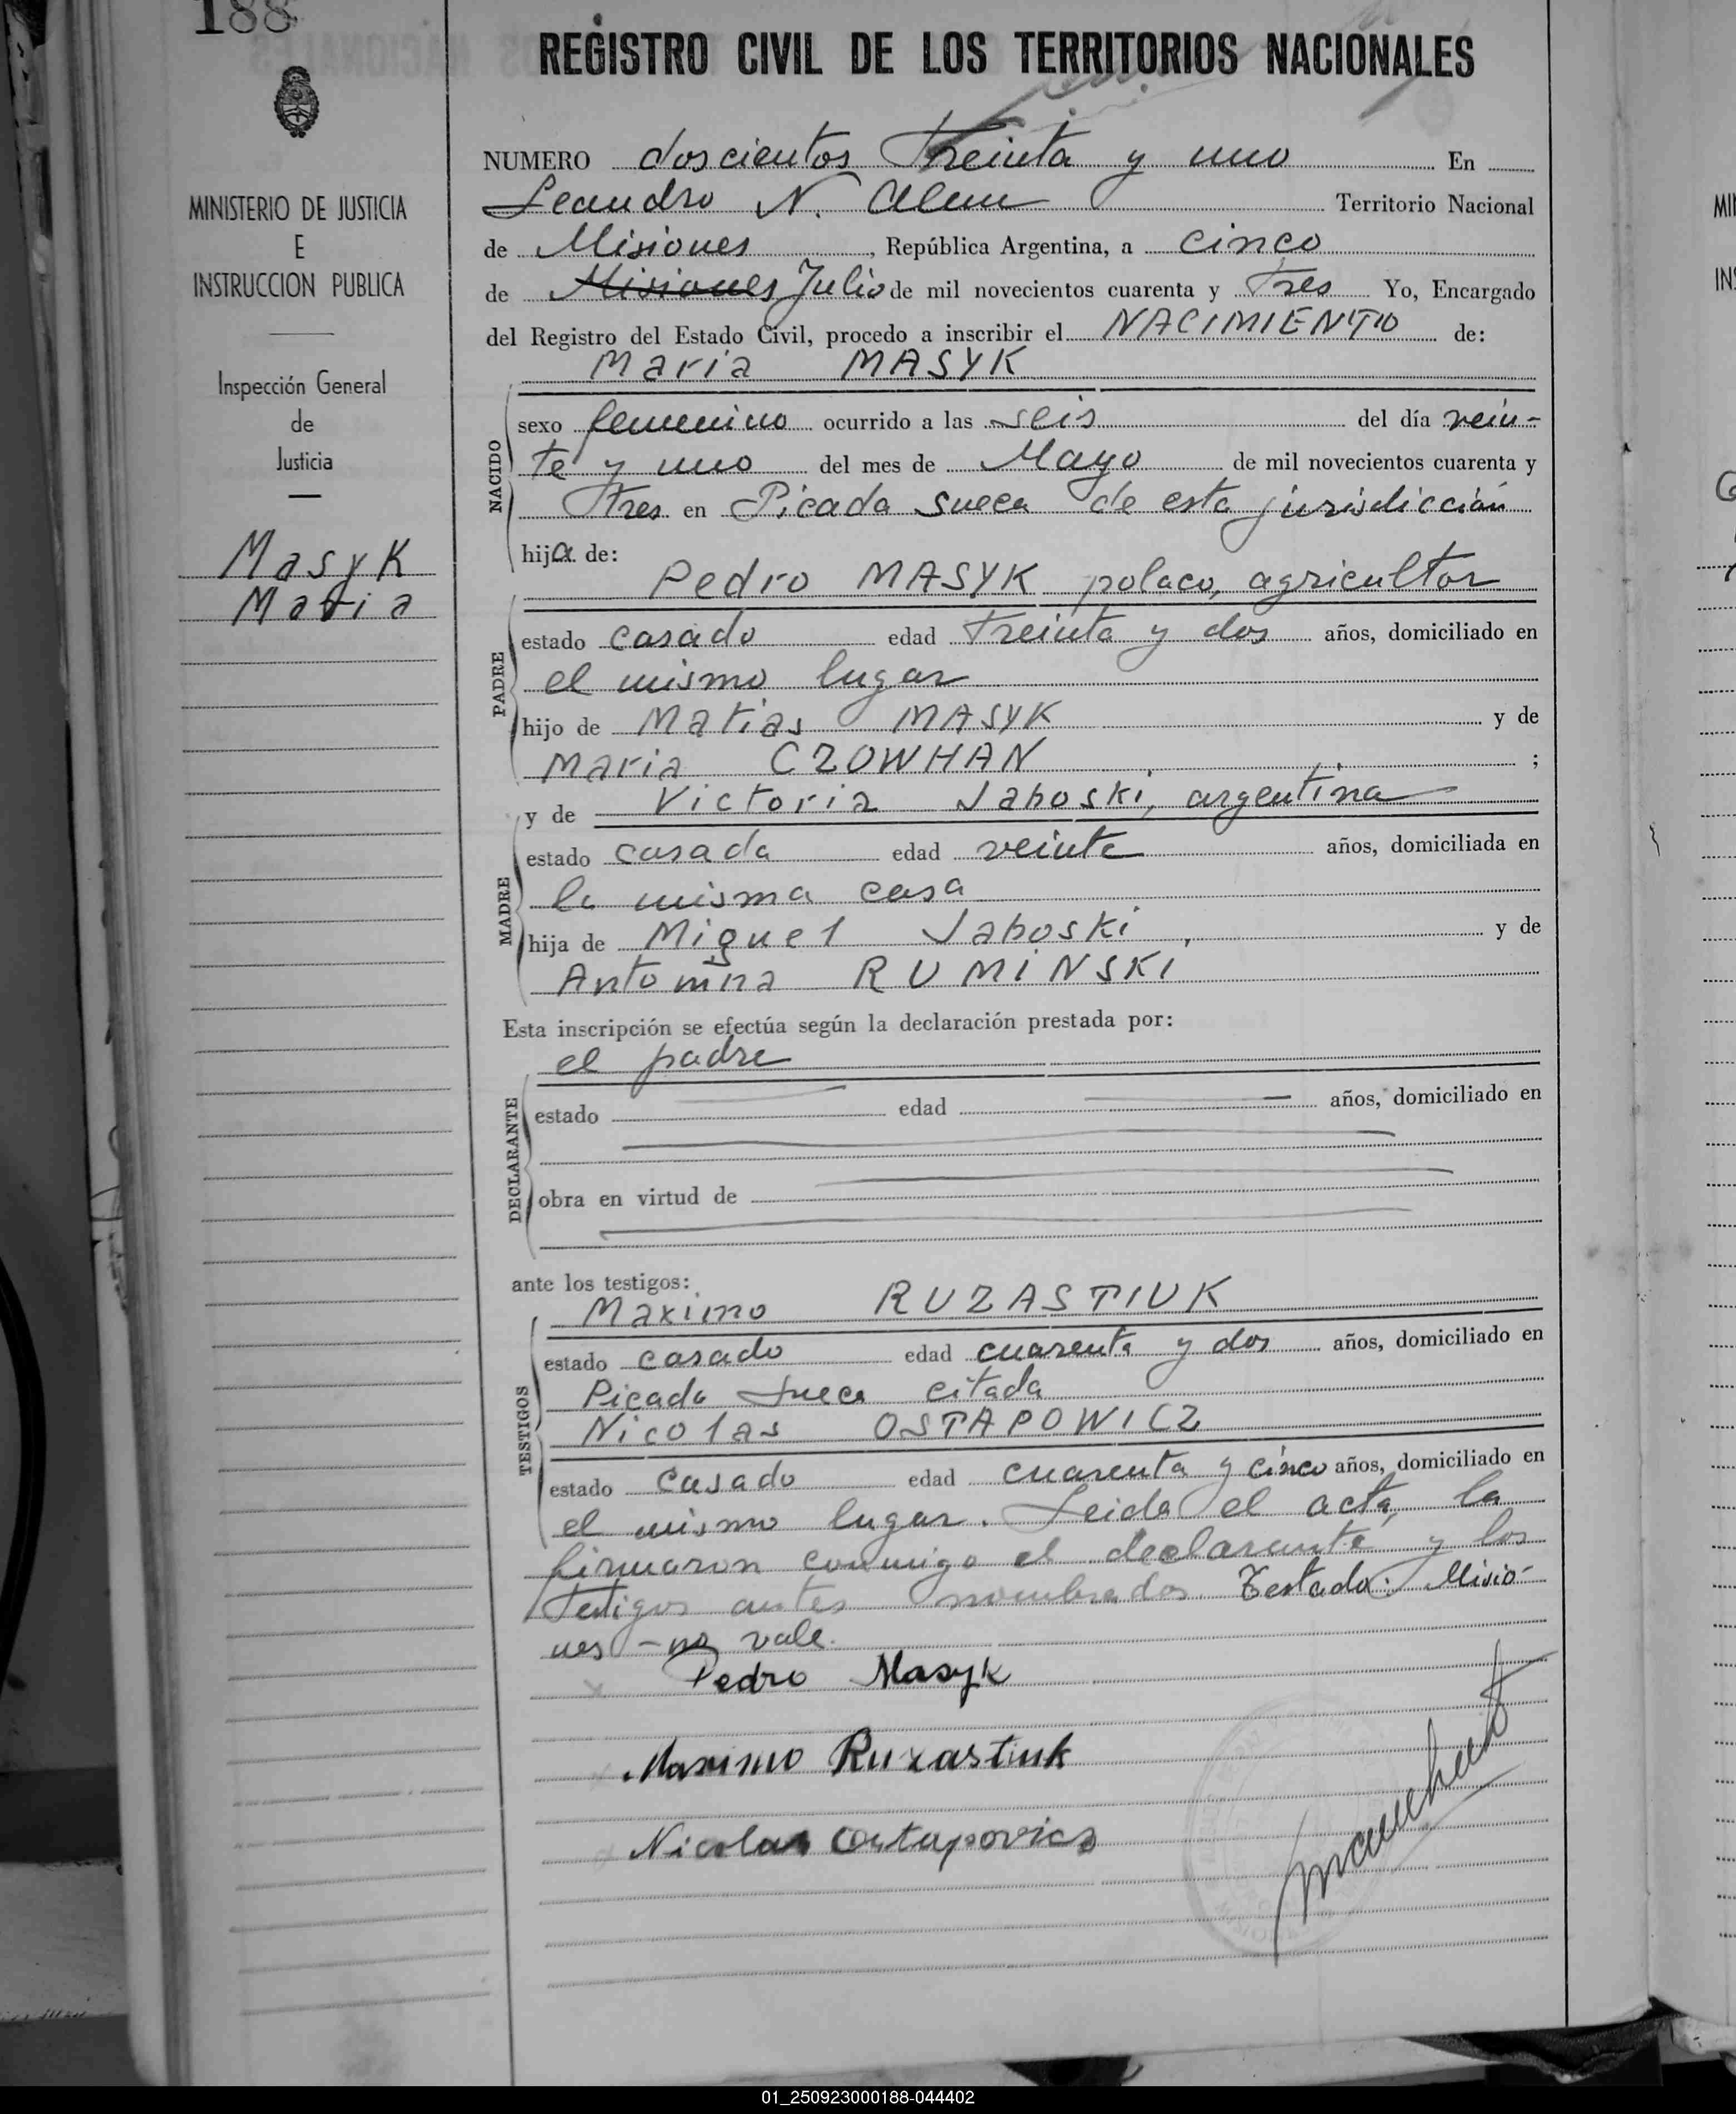 188
REGISTRO CIVIL DE LOS TERRITORIOS NACIONALES
MINISTERIO DE JUSTICIA
E
INSTRUCCION PUBLICA
Inspección General
de
Justicia
Masyk
Maria
NUMERO doscientos treinta y uno En
Leandro N. Alem Territorio Nacional
de Misiones, República Argentina, a cinco
de Misiones Julio de mil novecientos cuarenta y Tres Yo, Encargado
del Registro del Estado Civil, procedo a inscribir el NACIMIENTO de:
Maria MASYK
NACIDO
sexo femenino ocurrido a las seis del día vein-
te y uno del mes de Mayo de mil novecientos cuarenta y
Tres en Picada Sueca de esta jurisdicción
hija de:
Pedro MASYK polaco, agricultor
PADRE
estado casado edad treinta y dos años, domiciliado en
el mismo lugar
hijo de Matias MASYK y de
Maria CZOWHAN ;
y de Victoria Jaboski, argentina
MADRE
estado casada edad veinte años, domiciliada en
la misma casa
hija de Miguel Jaboski, y de
Antonina RUMINSKI
Esta inscripción se efectúa según la declaración prestada por:
el padre
DECLARANTE
estado edad años, domiciliado en
obra en virtud de
ante los testigos:
Maximo RUZASTIUK
TESTIGOS
estado casado edad cuarenta y dos años, domiciliado en
Picada Sueca citada
Nicolas OSTAPOWICZ
estado casado edad cuarenta y cinco años, domiciliado en
el mismo lugar. Leida el acta, la
firmaron conmigo el declarante y los
testigos antes nombrados. Testado: Misio-
nes - no vale.
Pedro Masyk
Maximo Ruzastiuk
Nicolas Ostapovicz
01_250923000188-044402